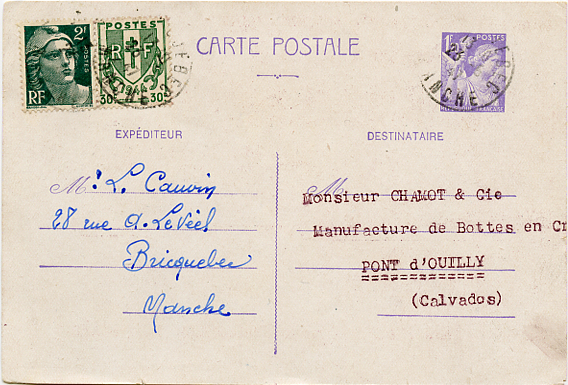 2F
POSTES
RF
POSTES
RF
30c 30c
CARTE POSTALE
1F
POSTES
MANCHE
EXPÉDITEUR
DESTINATAIRE
Mr. L. Cauvin
28 rue A. Le Véel
Bricquebec
Manche
M
Monsieur CHAMOT & Cie
Manufacture de Bottes en Cr
PONT d'OUILLY
(Calvados)